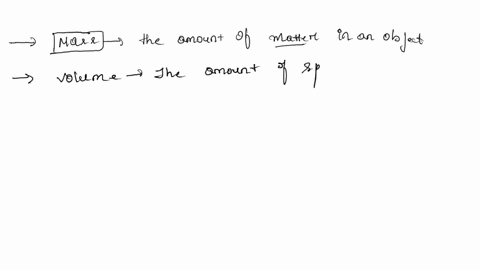 → Mass → the amount of matter in an object
→ volume → The amount of sp